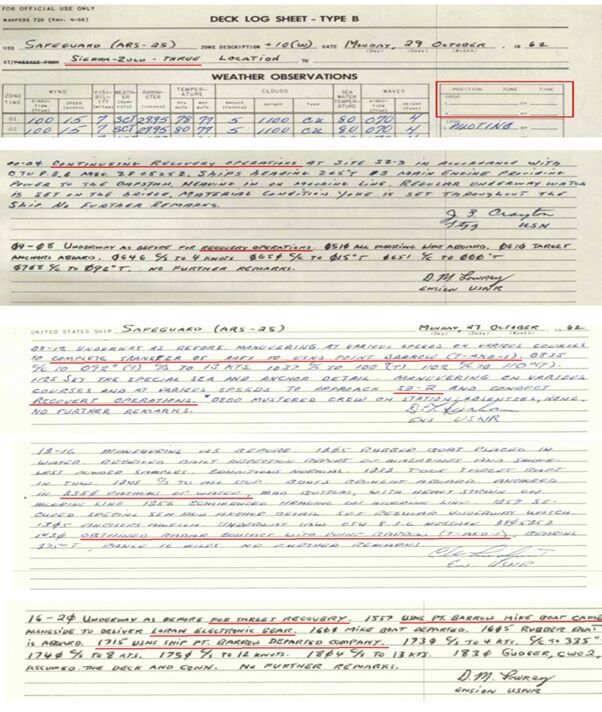 FOR OFFICIAL USE ONLY
NAVPERS 720 (Rev. 4-58)
DECK LOG SHEET - TYPE B
USS SAFEGUARD (ARS-25) ZONE DESCRIPTION +10(W) DATE MONDAY, 29 OCTOBER, 1962
(Day) (Date) (Month)
AT/PASSAGE FROM SIERRA-ZULU-THREE LOCATION TO
WEATHER OBSERVATIONS
ZONE TIME WIND VISIBILITY (Miles) WEATHER BAROMETER TEMPERATURE CLOUDS SEA WATER TEMPERATURE WAVES POSITION ZONE TIME
DIRECTION (True) SPEED (Knots) Dry Bulb Wet Bulb Amount (Tenths) Height Type DIRECTION (True) HEIGHT (Feet) 0800
L BY
01 100 15 7 SCT 2995 78 77 5 1100 CU 80 070 4
02 100 15 7 SCT 2995 80 77 5 1100 CU 80 070 4
00-04 CONTINUEING RECOVERY OPERATIONS AT SITE SZ-3 IN ACCORDANCE WITH
CTU 8.3.6 MSG 280525Z. SHIPS HEADING 265°T #3 MAIN ENGINE PROVIDING
POWER TO THE CAPSTAN, HEAVING IN ON MOORING LINE. REGULAR UNDERWAY WATCH
IS SET ON THE BRIDGE, MATERIAL CONDITION YOKE IS SET THROUGHOUT THE
SHIP NO FURTHER REMARKS.
USN
04-08 UNDERWAY AS BEFORE FOR RECOVERY OPERATIONS. 0510 ALL MOORING LINE ABOARD. 0610 TARGET
ANCHORS ABOARD. 0646 C/S TO 4 KNOTS 0654 C/C TO 015°T 0651 C/C TO 060°T
C/C TO 092°T. NO FURTHER REMARKS.
D.M. Lowrey
ENSIGN USNR
UNITED STATES SHIP SAFEGUARD (ARS-25) MONDAY, 29 OCTOBER, 1962
(Day) (Date) (Month)
08-12 UNDERWAY AS BEFORE. MANUVERING AT VARIOUS SPEEDS ON VARIOUS COURSES
TO COMPLETE TRANSFER OF RAFT TO USNS POINT BARROW (T-AKD-1). 0835
C/C TO 092°(T) C/S TO 13 KTS. 1037 C/C TO 100°(T). C/C TO 110°(T).
1125 SET THE SPECIAL SEA AND ANCHOR DETAIL. MANUVERING ON VARIOUS
COURSES AND AT VARIOUS SPEEDS TO APPROACH SZ-2 AND CONDUCT
RECOVERY OPERATIONS. 0800 MUSTERED CREW ON STATION; ABSENTEES, NONE.
NO FURTHER REMARKS.
ENS USNR
12-16 MANUVERING AS BEFORE. RUBBER BOAT PLACED IN
WATER RECEIVED DAILY INSPECTION REPORT OF MAGAZINES AND SMOKE-
LESS POWDER SAMPLES. CONDITIONS NORMAL. 1232 TOOK TARGET RAFT
IN TOW. 1245 C/S TO ALL STOP. BOUYS BROUGHT ABOARD. ANCHORED
IN FATHOMS OF WATER, MUD BOTTOM, WITH HEAVY STRAIN ON
MOORING LINE. 1250 COMMENCED HEAVING ON MOORING LINE. 1257 SE-
CURED SPECIAL SEA AND ANCHOR DETAIL SET REGULAR UNDERWAY WATCH.
1345 ANCHORS AWEIGH. UNDERWAY IAW CTU 8.3.6 MESSAGE
1430 OBTAINED RADAR CONTACT WITH POINT BARROW (T-AKD-1), BEARING
RANGE 16 MILES NO FURTHER REMARKS
ENS. USNR
16-20 UNDERWAY AS BEFORE FOR TARGET RECOVERY. 1557 USNS PT. BARROW MIKE BOAT CAME
ALONGSIDE TO DELIVER LORAN ELECTRONIC GEAR. 1608 MIKE BOAT DEPARTED. 1645 RUBBER BOAT
IS ABOARD. 1715 USNS SHIP PT. BARROW DEPARTED COMPANY. 1734 C/S TO 4 KTS. C/C TO 335°
1740 C/S TO 8 KTS. 1750 C/S TO 12 KNOTS. 1804 C/S TO 13 KTS. 1830 GUDGER, CWO2,
ASSUMED THE DECK AND CONN. NO FURTHER REMARKS.
D.M. Lowrey
ENSIGN USNR